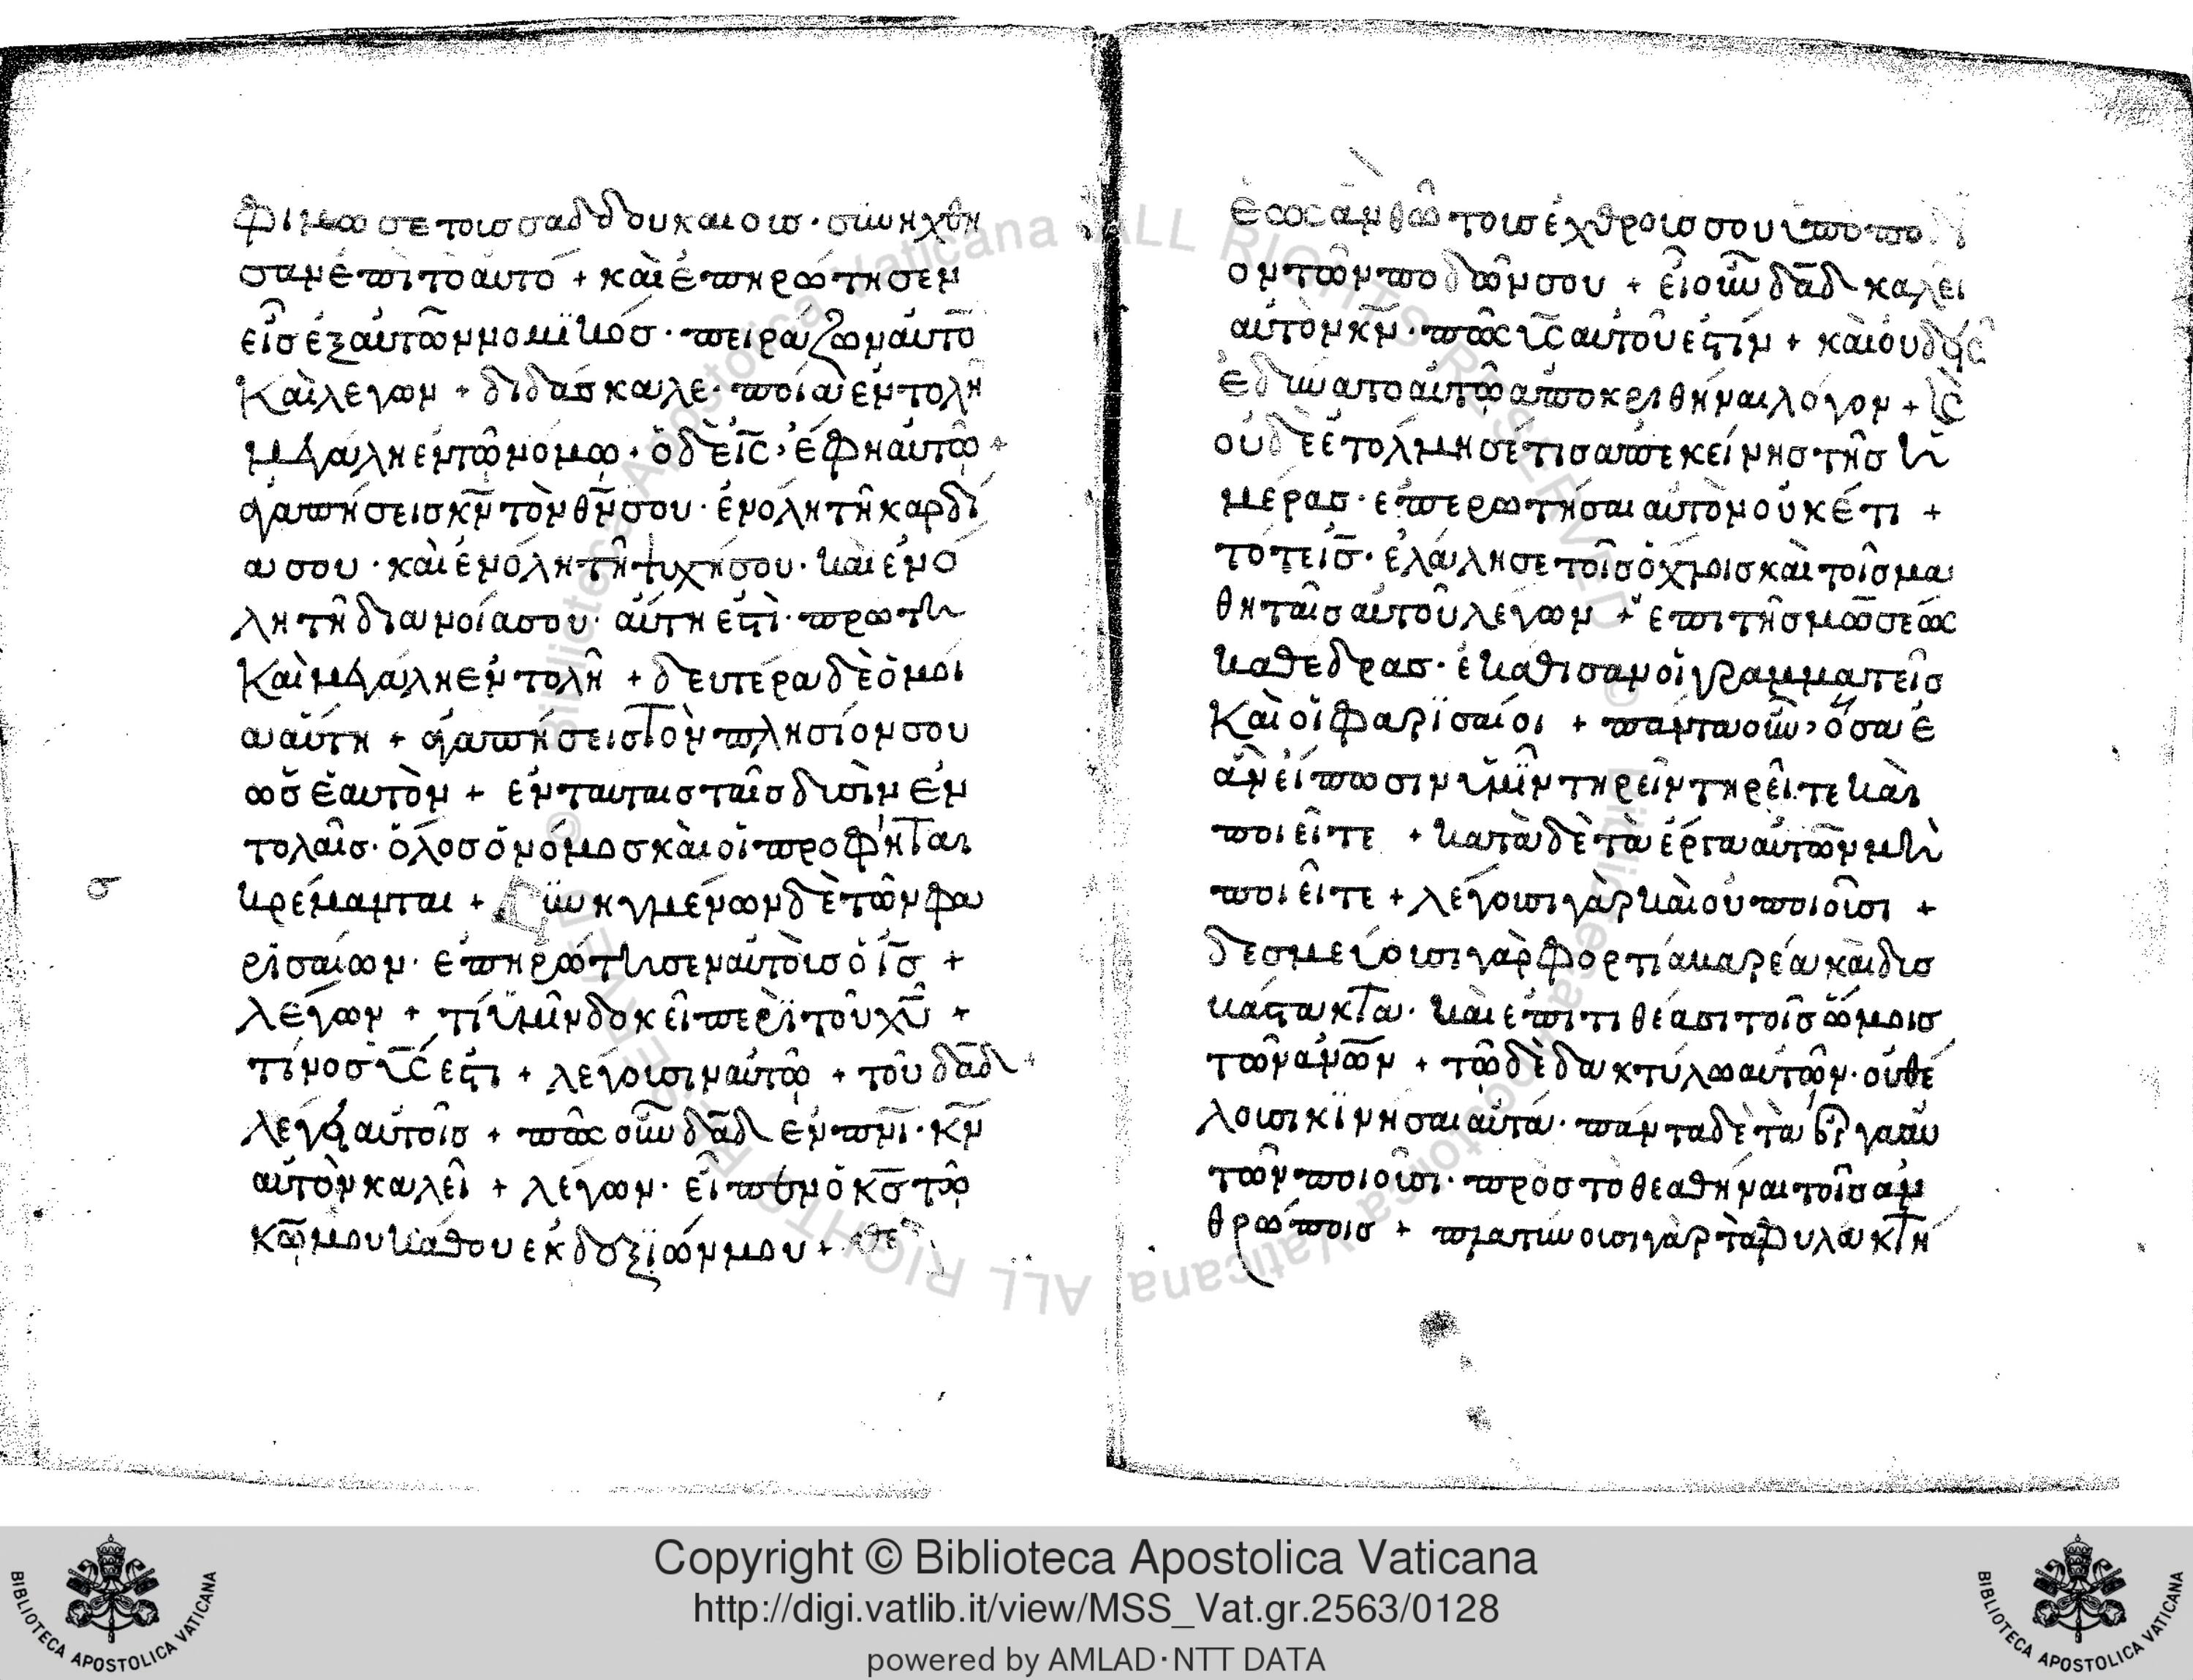 φιμωσε τοισ σαδδουκαιοισ · συνηχθη
σαν ἐπὶ τὸ ἀυτό + καὶ ἐπηρώτησεν
εἷσ ἐξ αυτῶν νομϊκόσ · πειράζων αὐτὸ
Καὶ λεγων + διδάσκαλε · ποία ἐντολὴ
μεγάλη ἐν τῶ νόμω · ὁ δὲ ἰς̅, ἔφη αὐτῶ +
ἀγαπήσεισ κν̅ τὸν θν̅ σου · ἐν ὅλη τῆ καρδί
α σου · καὶ ἐν ὅλη τῆ ψυχή σου · καὶ ἐν ὅ
λη τῆ διανοία σου · αὕτη ἐστὶ · πρώτη
Καὶ μεγάλη ἐντολὴ + δευτέρα δὲ ὁμοί
α αὕτη + ἀγαπήσεισ τὸν πλησίον σου
ὡσ ἑαυτὸν + ἐν ταυταισ ταῖσ δυσὶν ἐν
τολαῖσ · ὅλοσ ὁ νόμοσ καὶ οἱ προφῆται
κρέμανται + συνηγμένων δὲ τῶν φα
ρισαίων · ἐπηρώτησεν αὐτοὺσ ὁ ἰσ̅ +
λέγων + τί ὑμῖν δοκεῖ περὶ τοῦ χυ̅ +
τίνοσ υς̅ ἐστι + λέγουσιν αὐτῶ + τοῦ δα̅δ +
λέγει αὐτοῖσ + πῶς οὖν δα̅δ ἐν πνι̅ · κν̅
αὐτὸν καλεῖ + λέγων · εἶπεν ὁ κσ̅ τῶ
κω̅ μου κάθου ἐκ δεξϊῶν μου +
σ
ἑως ἀν θῶ τοισ ἐχθροισ σου ὑποπο
ον τῶν ποδῶν σου + εἰ οὖν δα̅δ καλεῖ
αὐτὸν κν̅ · πῶς υς̅ αὐτοῦ ἐστίν + καὶ οὐδεὶς
ἐδύνατο αὐτῶ ἀποκριθῆναι λόγον +
οὐδὲ ἐτόλμησέ τισ ἀπ' ἐκείνησ τῆσ ἡ
μέρασ · ἐπερωτήσαι αὐτὸν οὐκέτι +
τότε ἰσ̅ · ἐλάλησε τοῖσ ὄχλοισ καὶ τοῖσ μα
θηταῖσ αὐτοῦ λέγων + ἐπι τῆσ μωσέως
καθεδρασ · ἐκάθισαν οἱ γραμματεῖσ
Καὶ οἱ φαρϊσαίοι + πάντα οὖν, ὅσα ἐ
ὰν εἴπωσιν ὑμῖν τηρεῖν τηρεῖτε καὶ
ποιεῖτε + κατὰ δὲ τὰ ἔργα αὐτῶν μὴ
ποιεῖτε + λέγουσι γὰρ καὶ οὐ ποιοῦσι +
δεσμεύουσι γὰρ φορτία βαρέα καὶ δισ
βάστακτα · καὶ ἐπιτιθέασι τοῖσ ὤμοισ
τῶν ἀνων̅ + τῶ δὲ δακτύλω αὐτῶν · οὐ θέ
λουσι κϊνῆσαι αὐτά · πάντα δὲ τὰ ἔργα αὐ
τῶν ποιοῦσι · πρὸσ τὸ θεαθῆναι τοῖσ ἀν
θρώποισ + πλατύνουσι γὰρ τὰ φυλακτή
Copyright © Biblioteca Apostolica Vaticana
http://digi.vatlib.it/view/MSS_Vat.gr.2563/0128
powered by AMLAD·NTT DATA